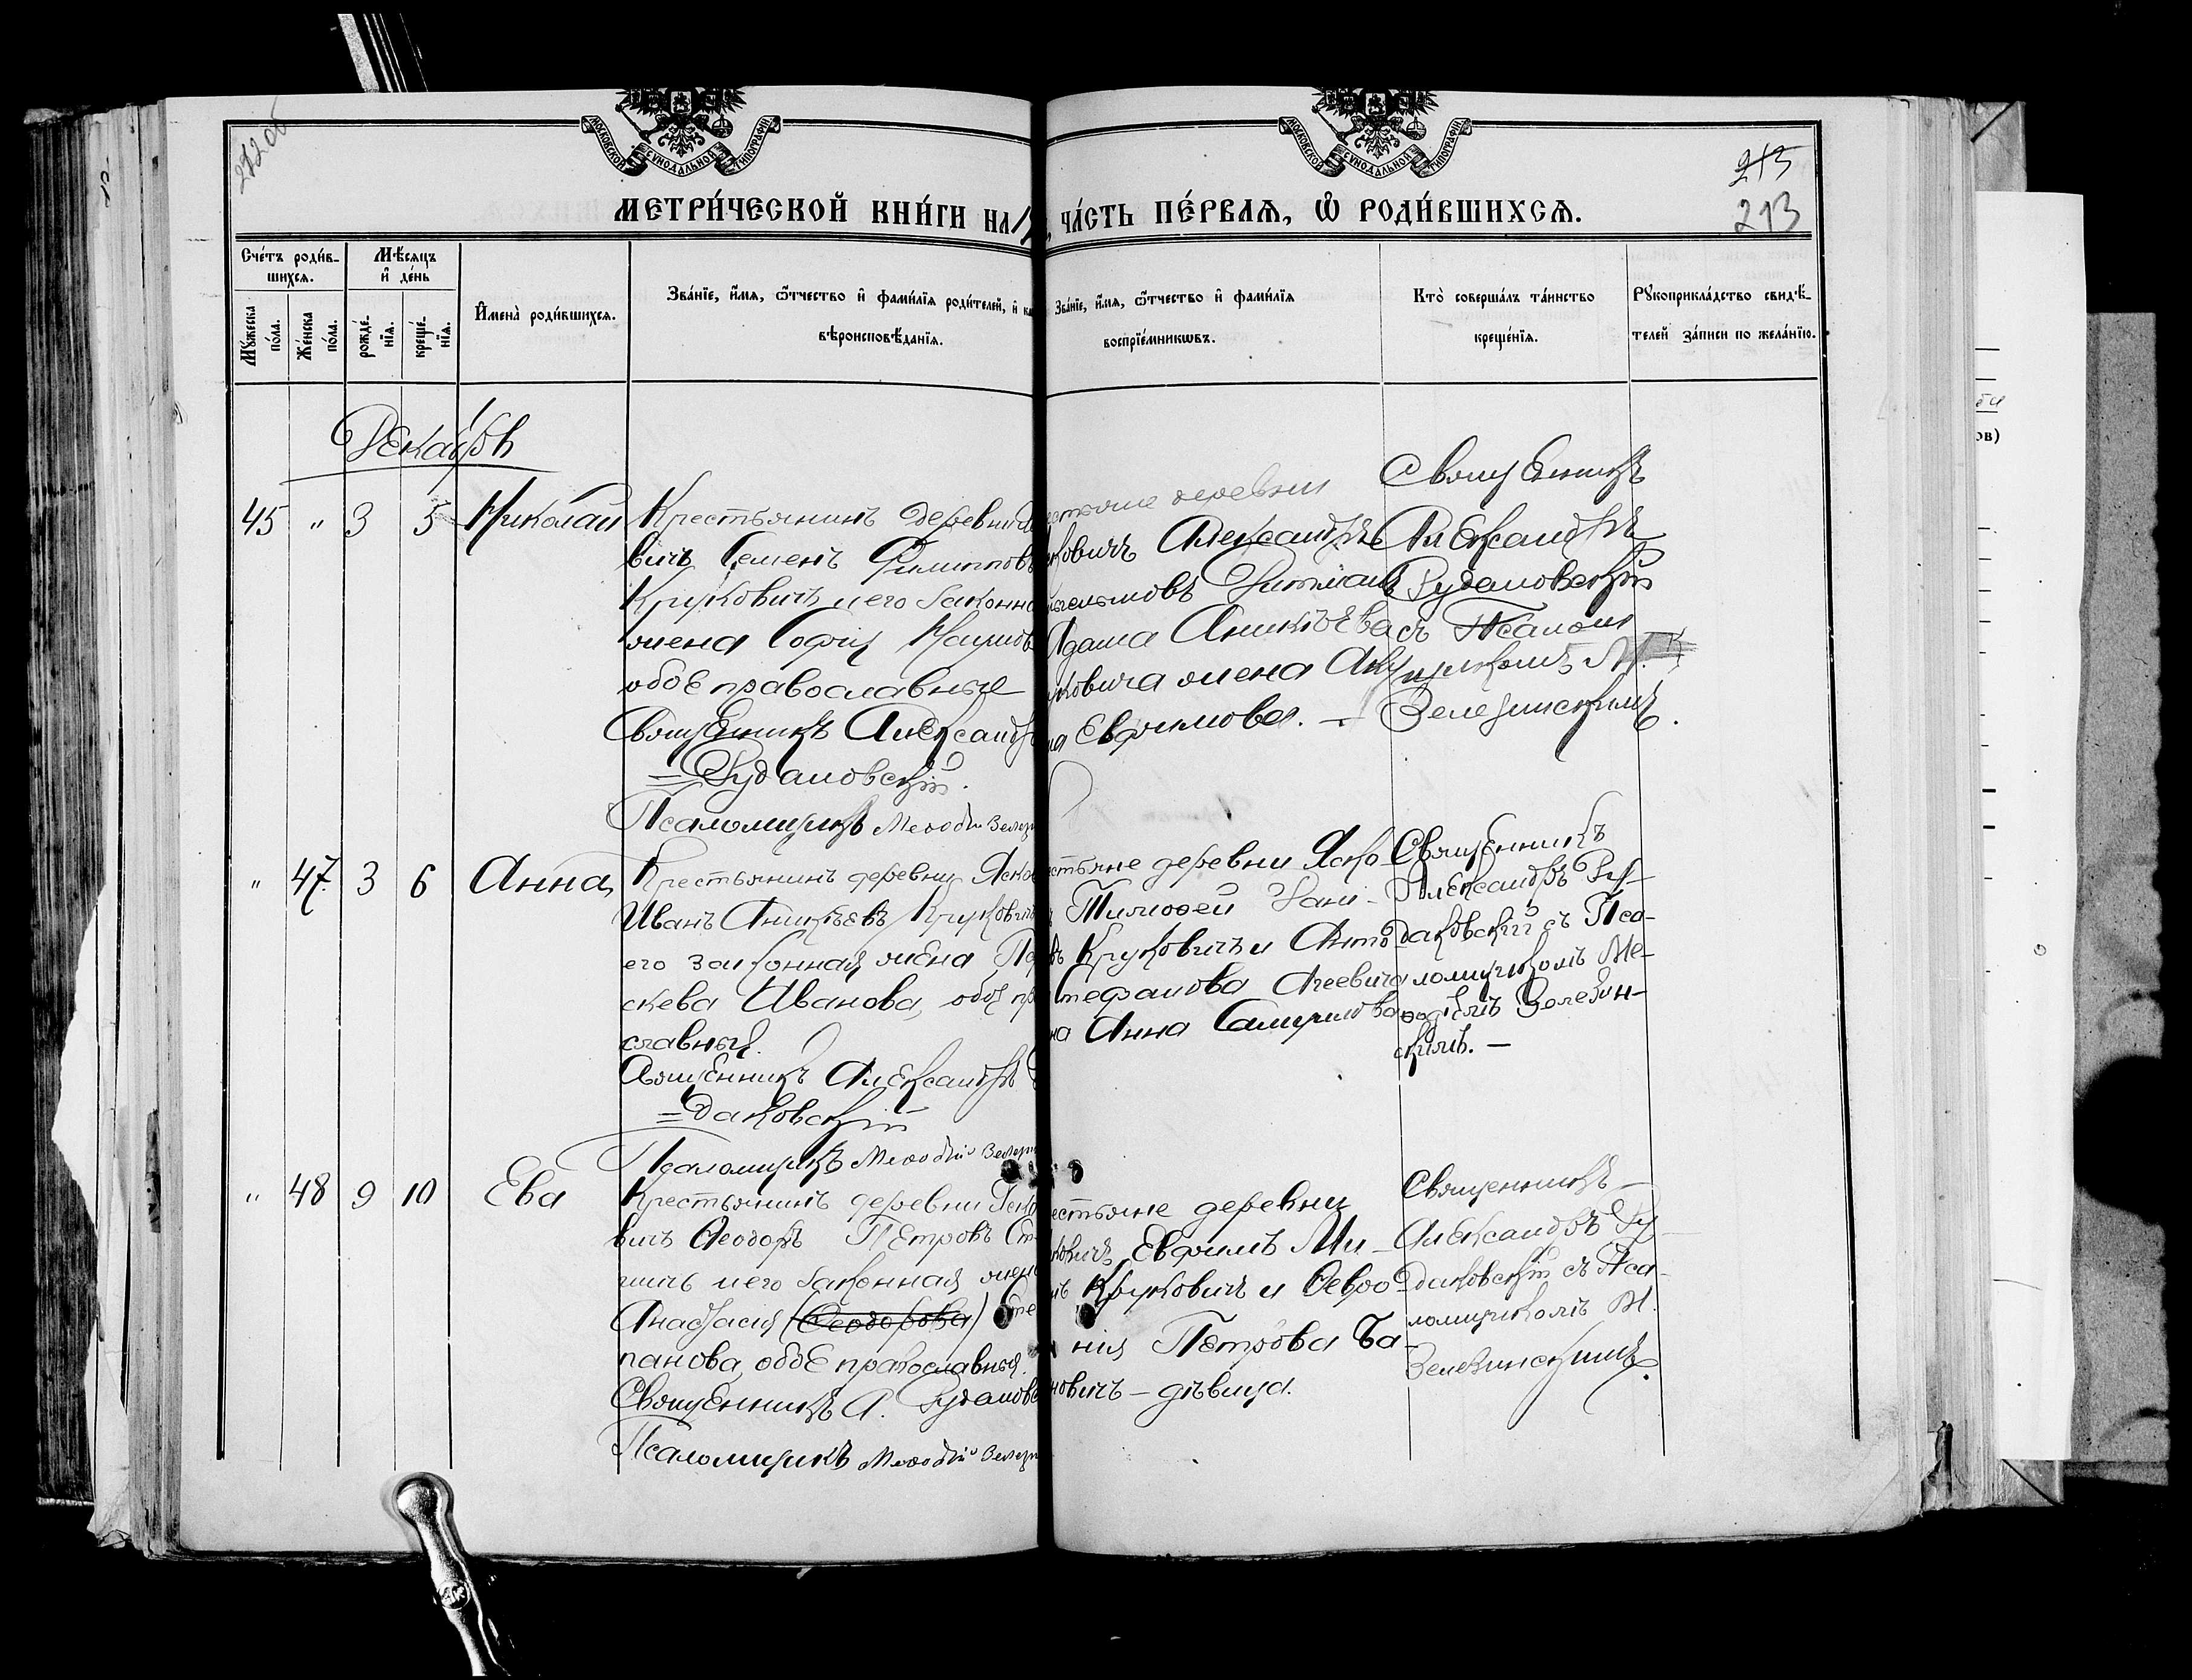 212об
МОСКОВСКОЙ СѴНОДАЛЬНОЙ ТИПОГРАФІИ
МОСКОВСКОЙ СѴНОДАЛЬНОЙ ТИПОГРАФІИ
213
213
МЕТРИ́ЧЕСКОЙ КНИ́ГИ НА
ЧА́СТЬ ПЕ́РВАЯ, Ѽ РОДИ́ВШИХСЯ.
Сче́тъ роди́в-
шихся.
Мѣ́сяцъ
и҆ де́нь
Му́жеска
по́ла.
Же́нска
по́ла.
рожде́-
нія.
креще́-
нія.
И҆мена̀ роди́вшихся.
Зва́нїе, и҆́мя, ѻ҆́тчество и҆ фами́лїя роди́телей, и҆
вѣроисповѣ́данїя.
Зва́нїе, и҆́мя, ѻ҆́тчество и҆ фами́лїя
воспрїе́мникѡвъ.
Кто̀ соверша́лъ та́инство
креще́нїя.
Рукоприкла́дство свидѣ́-
телей за́писи по жела́нїю.
Декабрь
45 " 3 5 Николай
Крестьянинъ деревни
вичъ Семенъ Филиппов
Круковичъ и его законна
жена Софія Наумов
обое православные
Священникъ Александр
=Рудаковскій.
Псаломщикъ Меѳодій
естьяне деревни
ковичъ Александръ
Адама Аникѣева
ковича жена
на Евфимова. —
Священникъ
Александръ
Рудаковскій
съ Псалом
щикомъ М.
Зелезинскимъ.
" 47 3 6 Анна
Крестьянинъ деревни Яско
Иванъ Аникѣевъ Круковичъ
его законная жена Па
скева Иванова, обое пр
славные.
Священникъ Александръ
=даковскій
Псаломщикъ Меѳодій
естьяне деревни Яско-
Тимоѳей
въ Круковичъ и Анто
тефанова Агеевича
на Анна
Священникъ
Александръ Ру-
даковскій съ Пса-
ломщикомъ Ме-
ѳодіемъ Зелезин-
скимъ. —
" 48 9 10 Ева
Крестьянинъ деревни Яско
вичъ Ѳеодоръ Петровъ Ст
и его законная жен
Анастасія (Ѳеодорова) Сте
панова, обое православные.
Священникъ А. Рудаковс
Псаломщикъ Меѳодій
естьяне деревни
ковичъ Евфимъ Ми-
Круковичъ и Ѳевро
нія Петрова Ба-
новичъ — дѣвица.
Священникъ —
Александръ Ру-
даковскій съ Пса-
ломщикомъ М.
Зелезинскимъ.